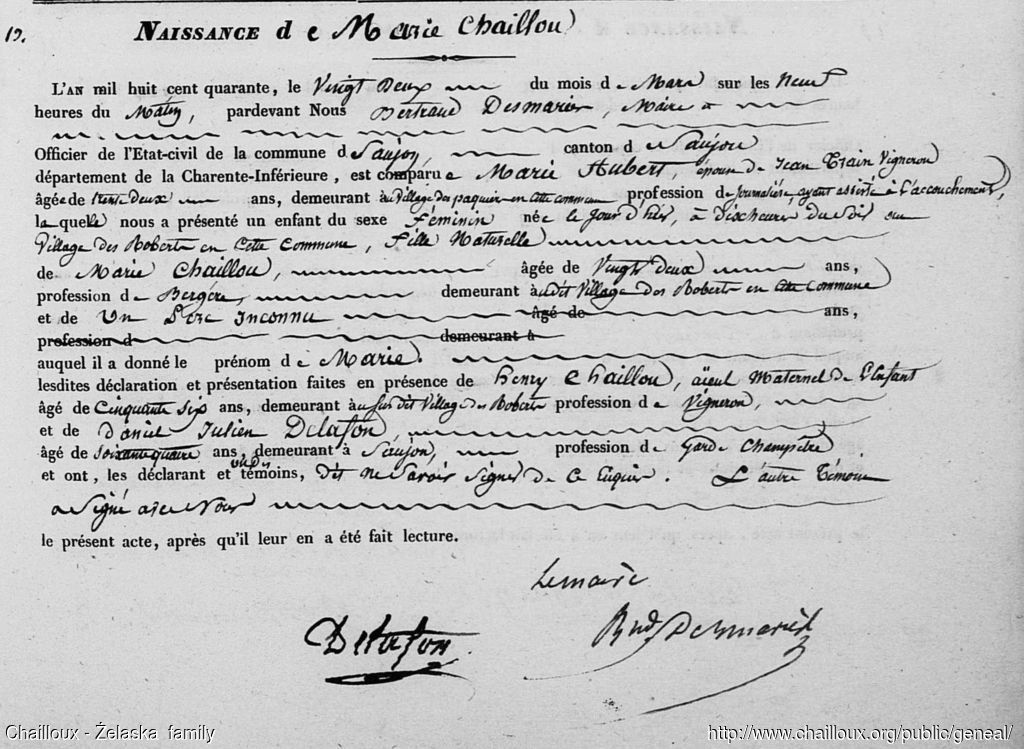 13. NAISSANCE de Marie Chaillou
L'AN mil huit cent quarante, le Vingt Deux du mois de Mars sur les Neuf
heures du Matin, pardevant Nous Bertrand Desmarier, Maire
Officier de l'Etat-civil de la commune d Saujon, canton d Saujon
département de la Charente-Inférieure, est comparue Marie Hubert, épouse de Jean Vigneron
âgée de trente deux ans, demeurant au Village des paquier en cette commune profession de journalière, ayant assisté à l'accouchement,
laquelle nous a présenté un enfant du sexe féminin née le jour d'hier, à Dix heures du Soir au
Village des Roberts en Cette Commune, fille Naturelle
de Marie Chaillou, âgée de Vingt deux ans,
profession de Bergère, demeurant audit Village des Roberts en cette commune
et de Un Père Inconnu âgé de ans,
profession d demeurant à
auquel il a donné le prénom de Marie.
lesdites déclaration et présentation faites en présence de henry Chaillou, aïeul Maternel de l'Enfant
âgé de Cinquante Six ans, demeurant au Sus dit Village des Roberts profession de Vigneron,
et de Daniel Julien Delafon,
âgé de soixante quatre ans, demeurant à Saujon, profession de garde Champêtre
et ont, les déclarant et un ds témoins, Dit ne Savoir Signer de Ce Enquis. L'autre Témoin
a Signé avec Nous
le présent acte, après qu'il leur en a été fait lecture.
Lemaire
Delafon Bnd Desmarier
Chailloux - Żelaska family http://www.chailloux.org/public/geneal/